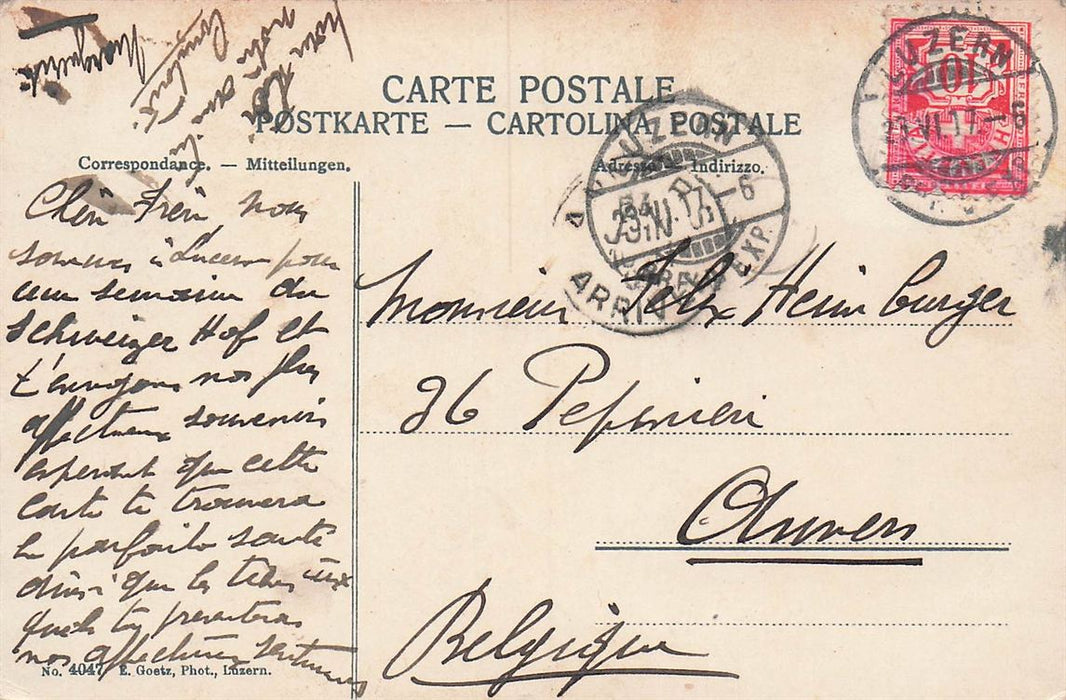 CARTE POSTALE
POSTKARTE — CARTOLINA POSTALE
Correspondance. — Mitteilungen.
Adresse — Indirizzo.
LUZERN
10
LUZERN
EXP.
ARRIV
Cher Frère nous
sommes à Lucerne pour
une semaine au
Schweizer Hof et
t'envoyons nos plus
affectueux souvenirs
esperant que cette
carte te trouvera
en parfaite santé
ainsi que les tiens aux
quels tu presenteras
nos affectueux sentiments
Monsieur Felix Heimburger
36 Pepinière
Anvers
Belgique
No. 4047 E. Goetz, Phot., Luzern.